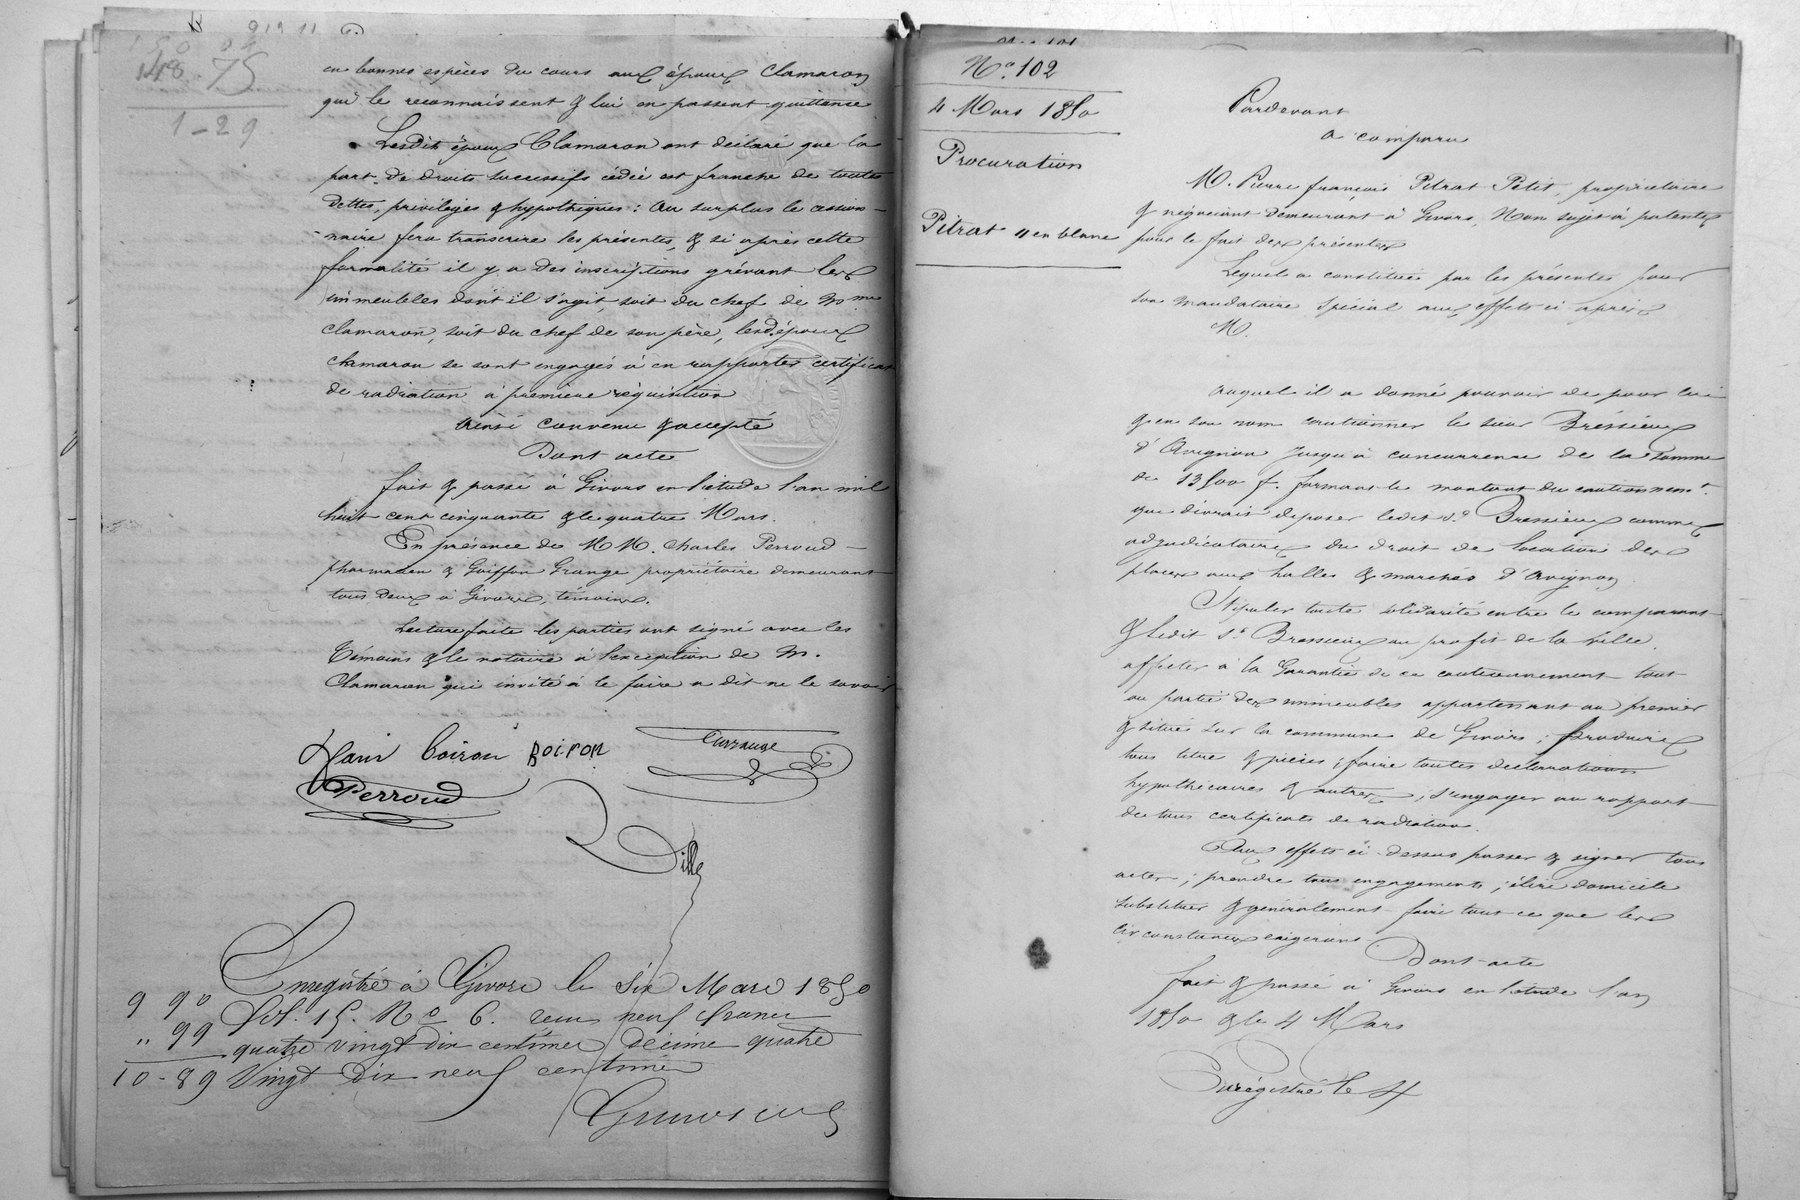 148 75
1-29
en bonnes espèces du cours aux époux Clamaron
qui le reconnaissent & lui en passent quittance
Lesdits époux Clamaron ont déclaré que la
part de droits successifs cédée est franche de toutes
dettes, privilèges & hypothèques : au surplus le cession-
naire fera transcrire les présentes, & si après cette
formalité il y a des inscriptions grévant les
immeubles dont il s'agit, soit du chef de Mme
Clamaron, soit du chef de son père, lesd. époux
Clamaron se sont engagés à en rapporter certificat
de radiation à première réquisition
Ainsi convenu & accepté
Dont acte
fait & passé à Givors en l'étude l'an mil
huit cent cinquante & le quatre Mars.
En présence de MM. Charles Perroud
pharmacien & Goiffon Grange propriétaire demeurant
tous deux à Givors, témoins.
Lecture faite les parties ont signé avec les
témoins & le notaire à l'exception de M.
Clamaron qui invité à le faire a dit ne le savoir
Boiron Boiron
Perroud
Enregistré à Givors le six Mars 1850
9 90 fol. 15. No 6. reçu neuf francs
" 99 quatre vingt dix centimes décime quatre
10-89 vingt dix neuf centimes
No. 102
4 Mars 1850
Procuration
Pitrat à en blanc
Pardevant
a comparu
M. Pierre françois Pitrat Petit, propriétaire
& négociant demeurant à Givors, Non sujet à patente
pour le fait des présentes
Lequel a constitué par les présentes pour
son mandataire spécial aux effets ci après
M.
auquel il a donné pouvoir de pour lui
& en son nom cautionner le sieur Bréssieux
d'Avignon jusqu'à concurrence de la somme
de 13500 f. formant le montant du cautionnemt.
que devrait déposer ledit sr. Bressieux comme
adjudicataire du droit de location des
places aux halles & marchés d'Avignon.
Stipuler toute solidarité entre le comparant
& ledit sr. Bressieux au profit de la ville.
affecter à la garantie de ce cautionnement tout
ou partie des immeubles appartenant au premier
& situés sur la commune de Givors ; produire
tous titres & pièces ; faire toutes déclarations
hypothécaires & autres ; s'engager au rapport
de tous certificats de radiation.
Aux effets ci-dessus passer & signer tous
actes ; prendre tous engagements ; élire domicile
substituer & généralement faire tout ce que les
circonstances exigeront.
Dont acte
fait & passé à Givors en l'étude l'an
1850 & le 4 Mars
Enregistré le 4